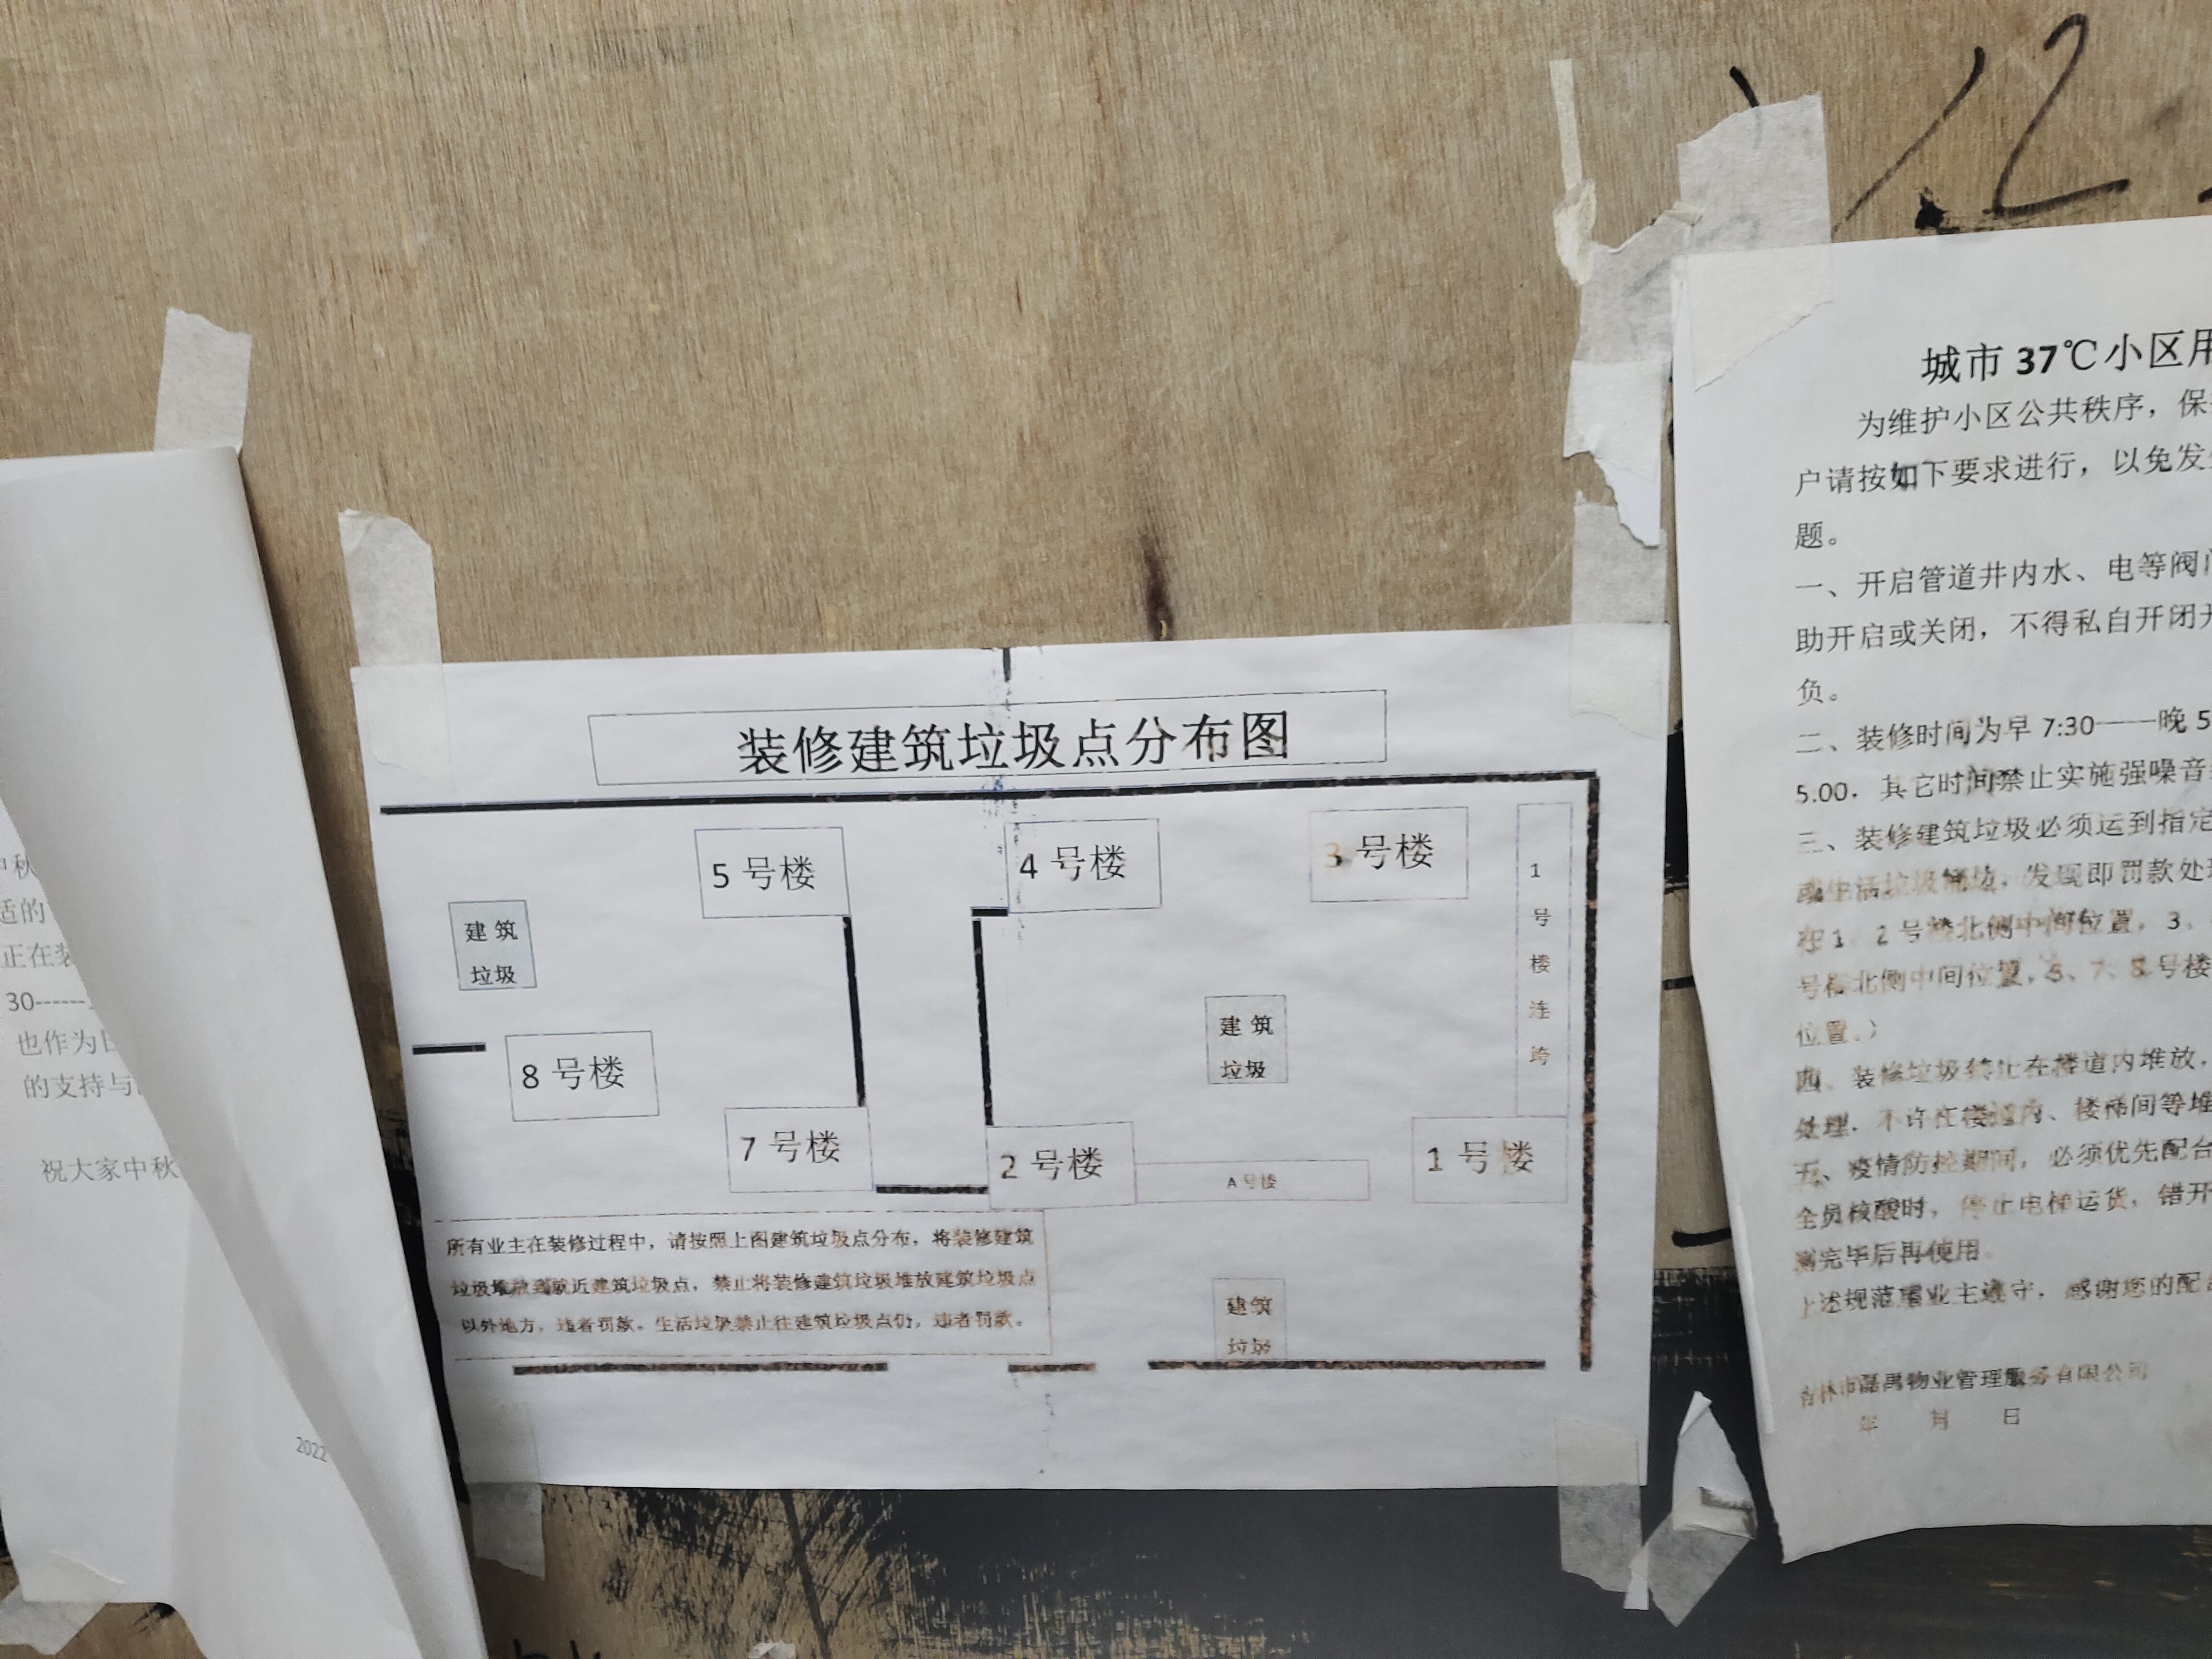 中秋
适的
正在装
30------
也作为日
的支持与
祝大家中秋
2022
装修建筑垃圾点分布图
5 号楼
4 号楼
3 号楼
1号楼连垮
建筑
垃圾
建筑
垃圾
8 号楼
7 号楼
2 号楼
A 号楼
1 号楼
所有业主在装修过程中，请按照上图建筑垃圾点分布，将装修建筑
垃圾堆放到就近建筑垃圾点，禁止将装修建筑垃圾堆放建筑垃圾点
以外地方，违者罚款。生活垃圾禁止往建筑垃圾点仍，违者罚款。
建筑
垃圾
12
城市 37℃小区用
为维护小区公共秩序，保
户请按如下要求进行，以免发
题。
一、开启管道井内水、电等阀门
助开启或关闭，不得私自开闭
负。
二、装修时间为早 7:30——晚 5
5.00．其它时间禁止实施强噪音
三、装修建筑垃圾必须运到指定
或生活垃圾桶边，发现即罚款处理
在 1、2 号楼北侧中间位置，3、
号楼北侧中间位置，5、7、8 号楼
位置。）
四、装修垃圾禁止在楼道内堆放，
处理．不许在楼道内、楼梯间等堆
五、疫情防控期间，必须优先配合
全员核酸时，停止电梯运货，错开
测完毕后再使用。
上述规范望业主遵守．感谢您的配合
吉林市磊禹物业管理服务有限公司
年 月 日